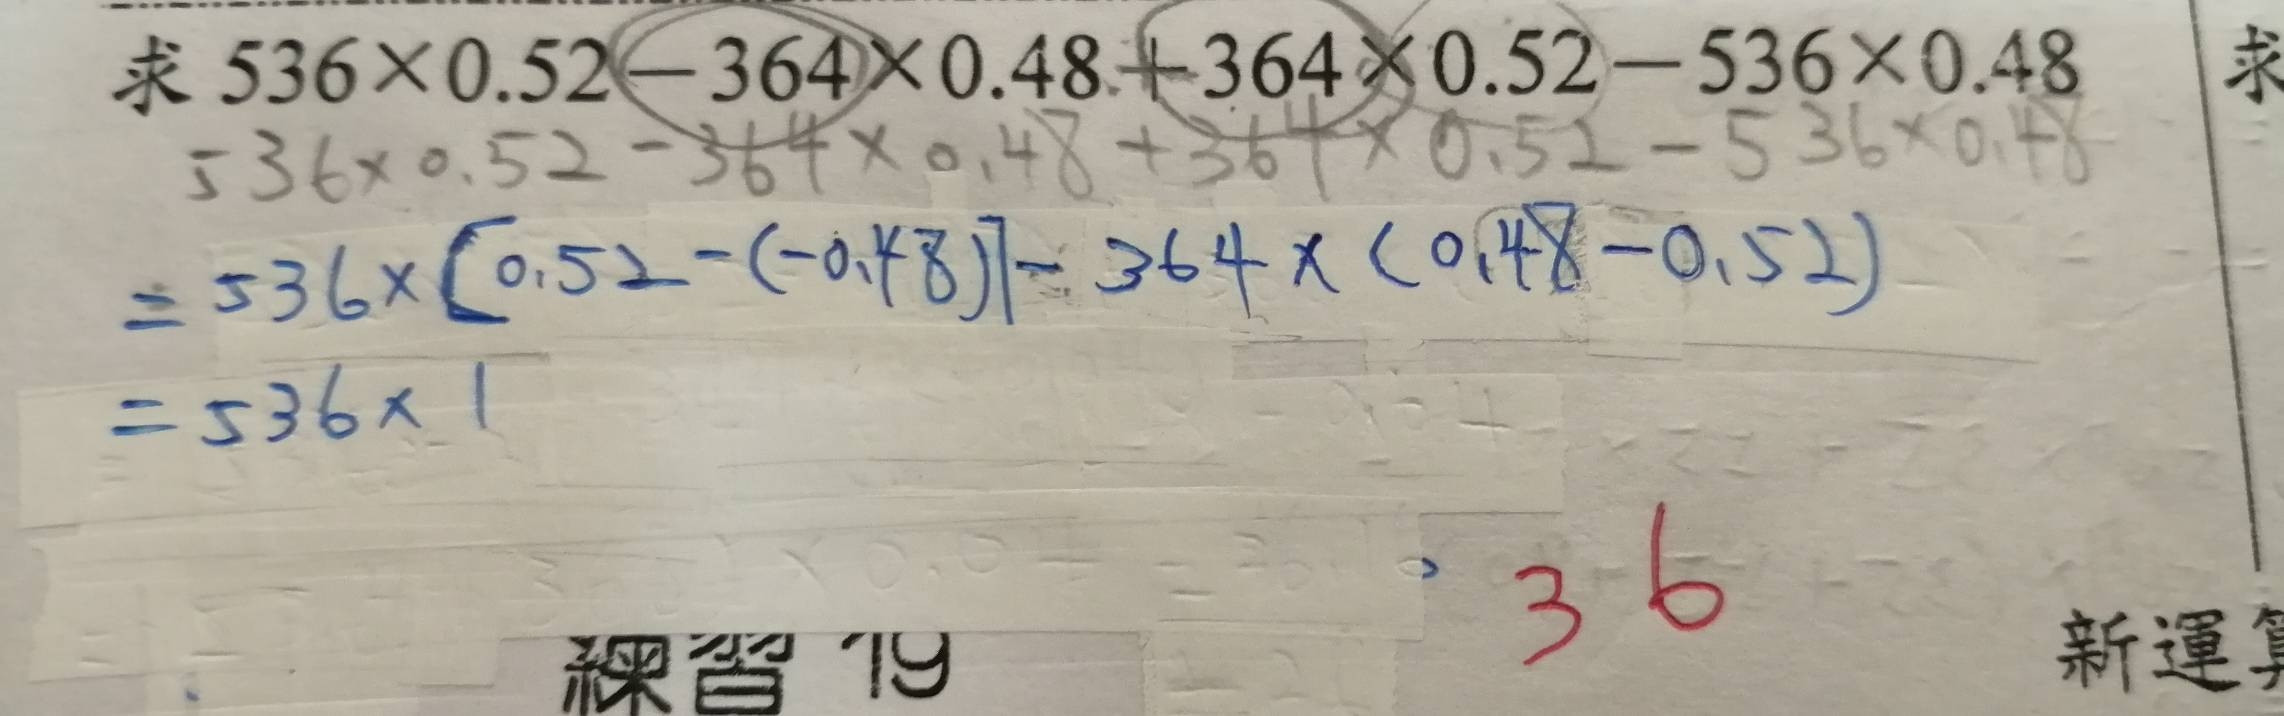 求 536×0.52－364×0.48＋364×0.52－536×0.48
536×0.52－364×0.48＋364×0.52－536×0.48
=536×[0.52-(-0.48)]-364×(0.48-0.52)
=536×1
36
練習 19
新運算
求